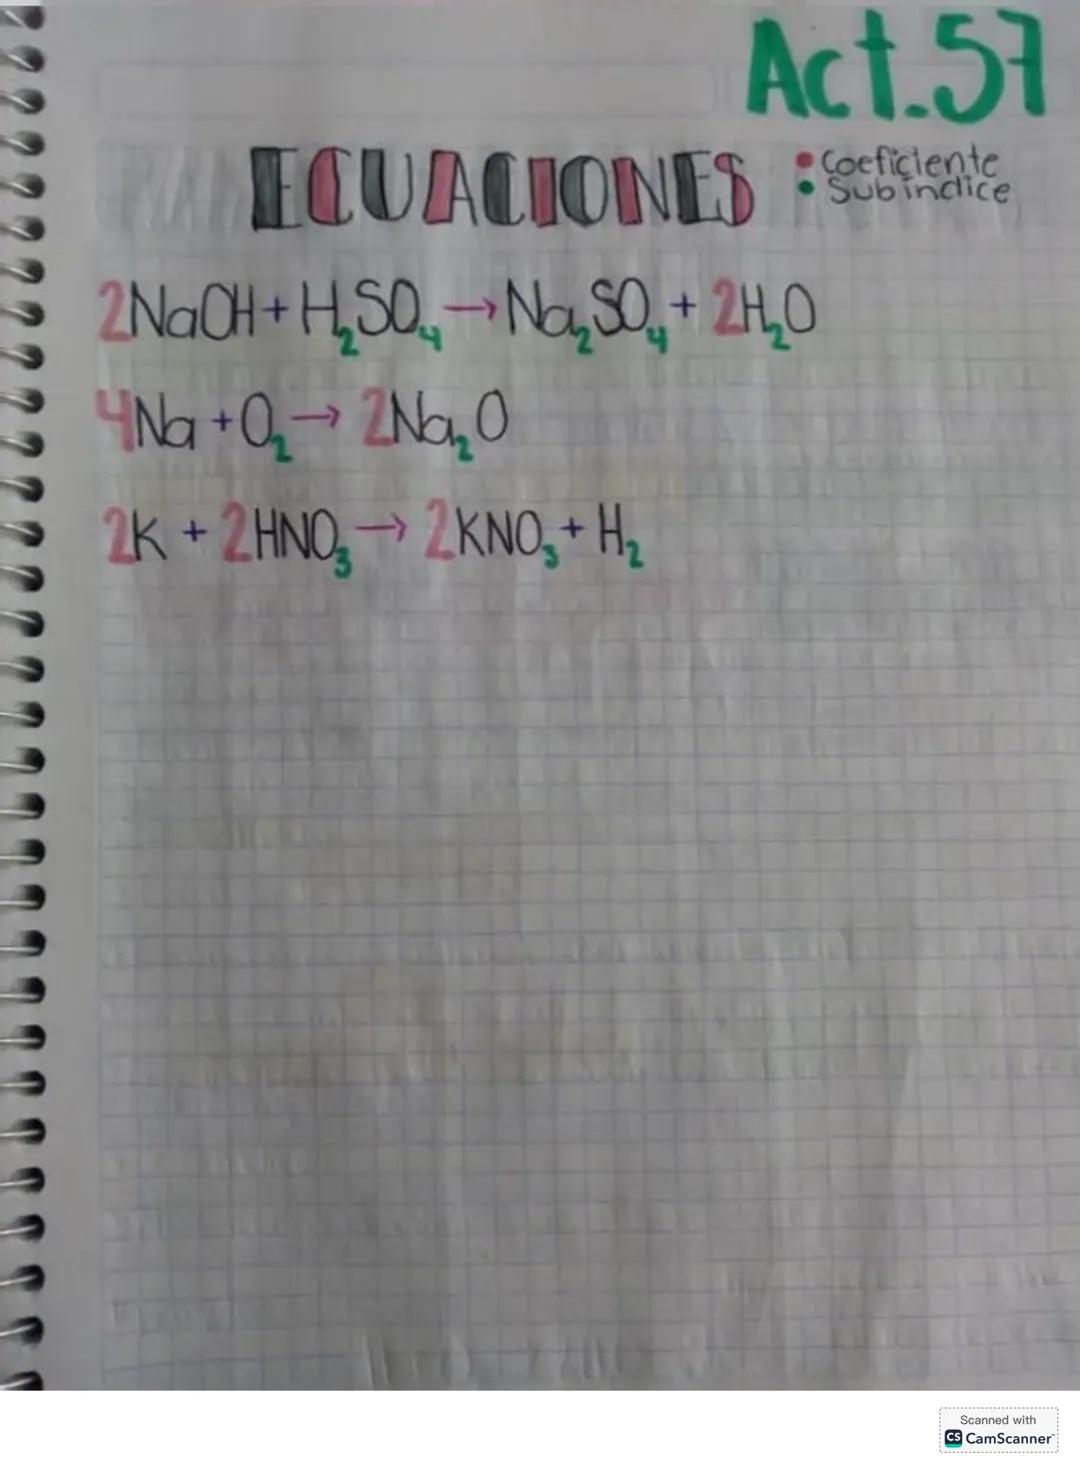 Act.57
ECUACIONES
• Coeficiente
• Subíndice
2NaOH + H₂SO₄ → Na₂SO₄ + 2H₂O
4Na + O₂ → 2Na₂O
2K + 2HNO₃ → 2KNO₃ + H₂
Scanned with
CS CamScanner